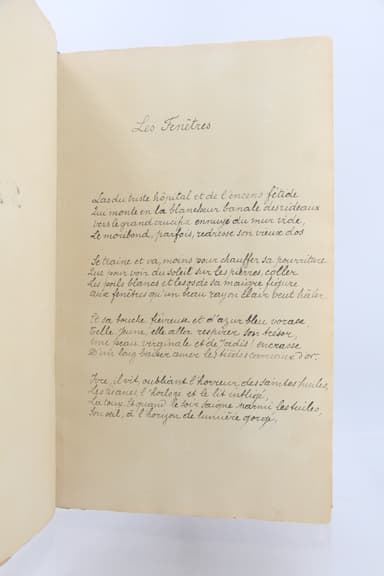 Les Fenêtres
Las du triste hôpital et de l'encens fétide
Qui monte en la blancheur banale des rideaux
vers le grand crucifix ennuyé du mur vide,
Le moribond, parfois, redresse son vieux dos
Se traîne et va, moins pour chauffer sa pourriture
Que pour voir du soleil sur les pierres, coller
Les poils blancs et les os de sa maigre figure
aux fenêtres qu'un beau rayon clair veut hâler.
Et sa bouche, fiévreuse et d'azur bleu vorace,
Telle, jeune, elle alla respirer son trésor,
Une peau virginale et de jadis! encrasse
D'un long baiser amer les tièdes carreaux d'or.
Ivre, il vit, oubliant l'horreur des saintes huiles,
Les tisanes, l'horloge et le lit infligé,
La toux. Et quand le soir saigne parmi les tuiles,
Son œil, à l'horizon de lumière gorgé,